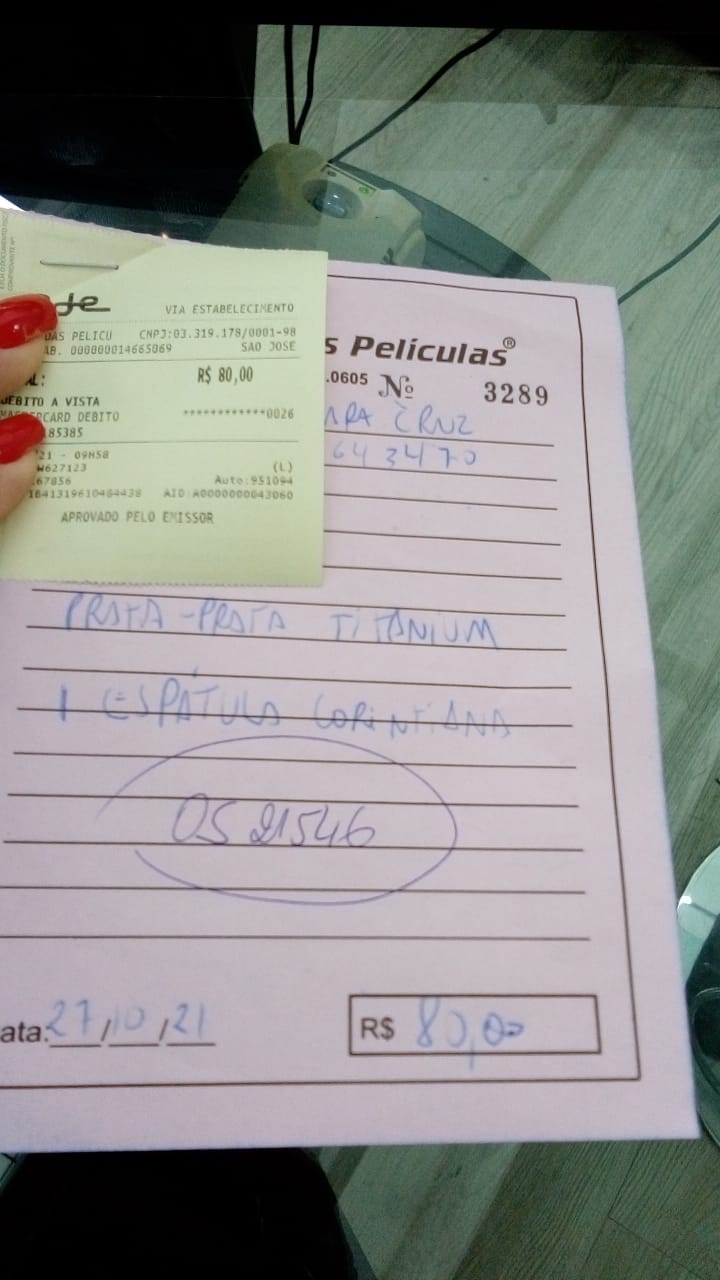 de
VIA ESTABELECIMENTO
DAS PELICU CNPJ:03.319.178/0001-98
AB. 000000014665069 SAO JOSE
AL: R$ 80,00
DEBITO A VISTA
MASTERCARD DEBITO ************0026
185385
21 - 09H58
W627123 (L)
67856 Auto:951094
1841319610484438 AID:A0000000043060
APROVADO PELO EMISSOR
s Películas®
.0605 Nº 3289
ARA CRUZ
643470
PRATA-PRATA TITANIUM
1 ESPÁTULA CORINTIANA
OS 21546
ata: 27/10/21 R$ 80,00